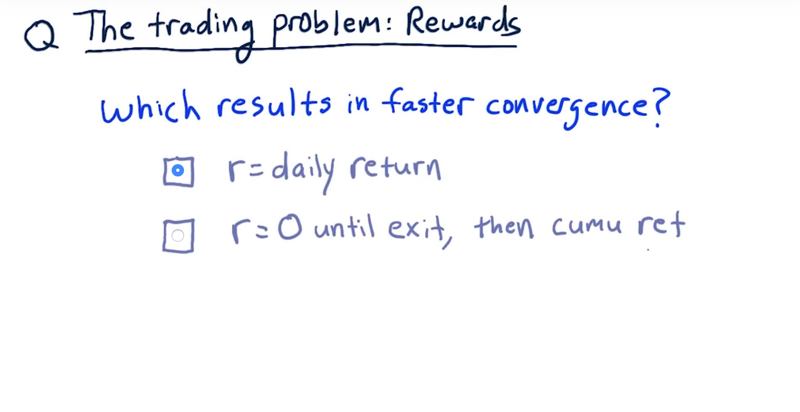 Q The trading problem: Rewards
Which results in faster convergence?
r = daily return
r = 0 until exit, then cumu ret